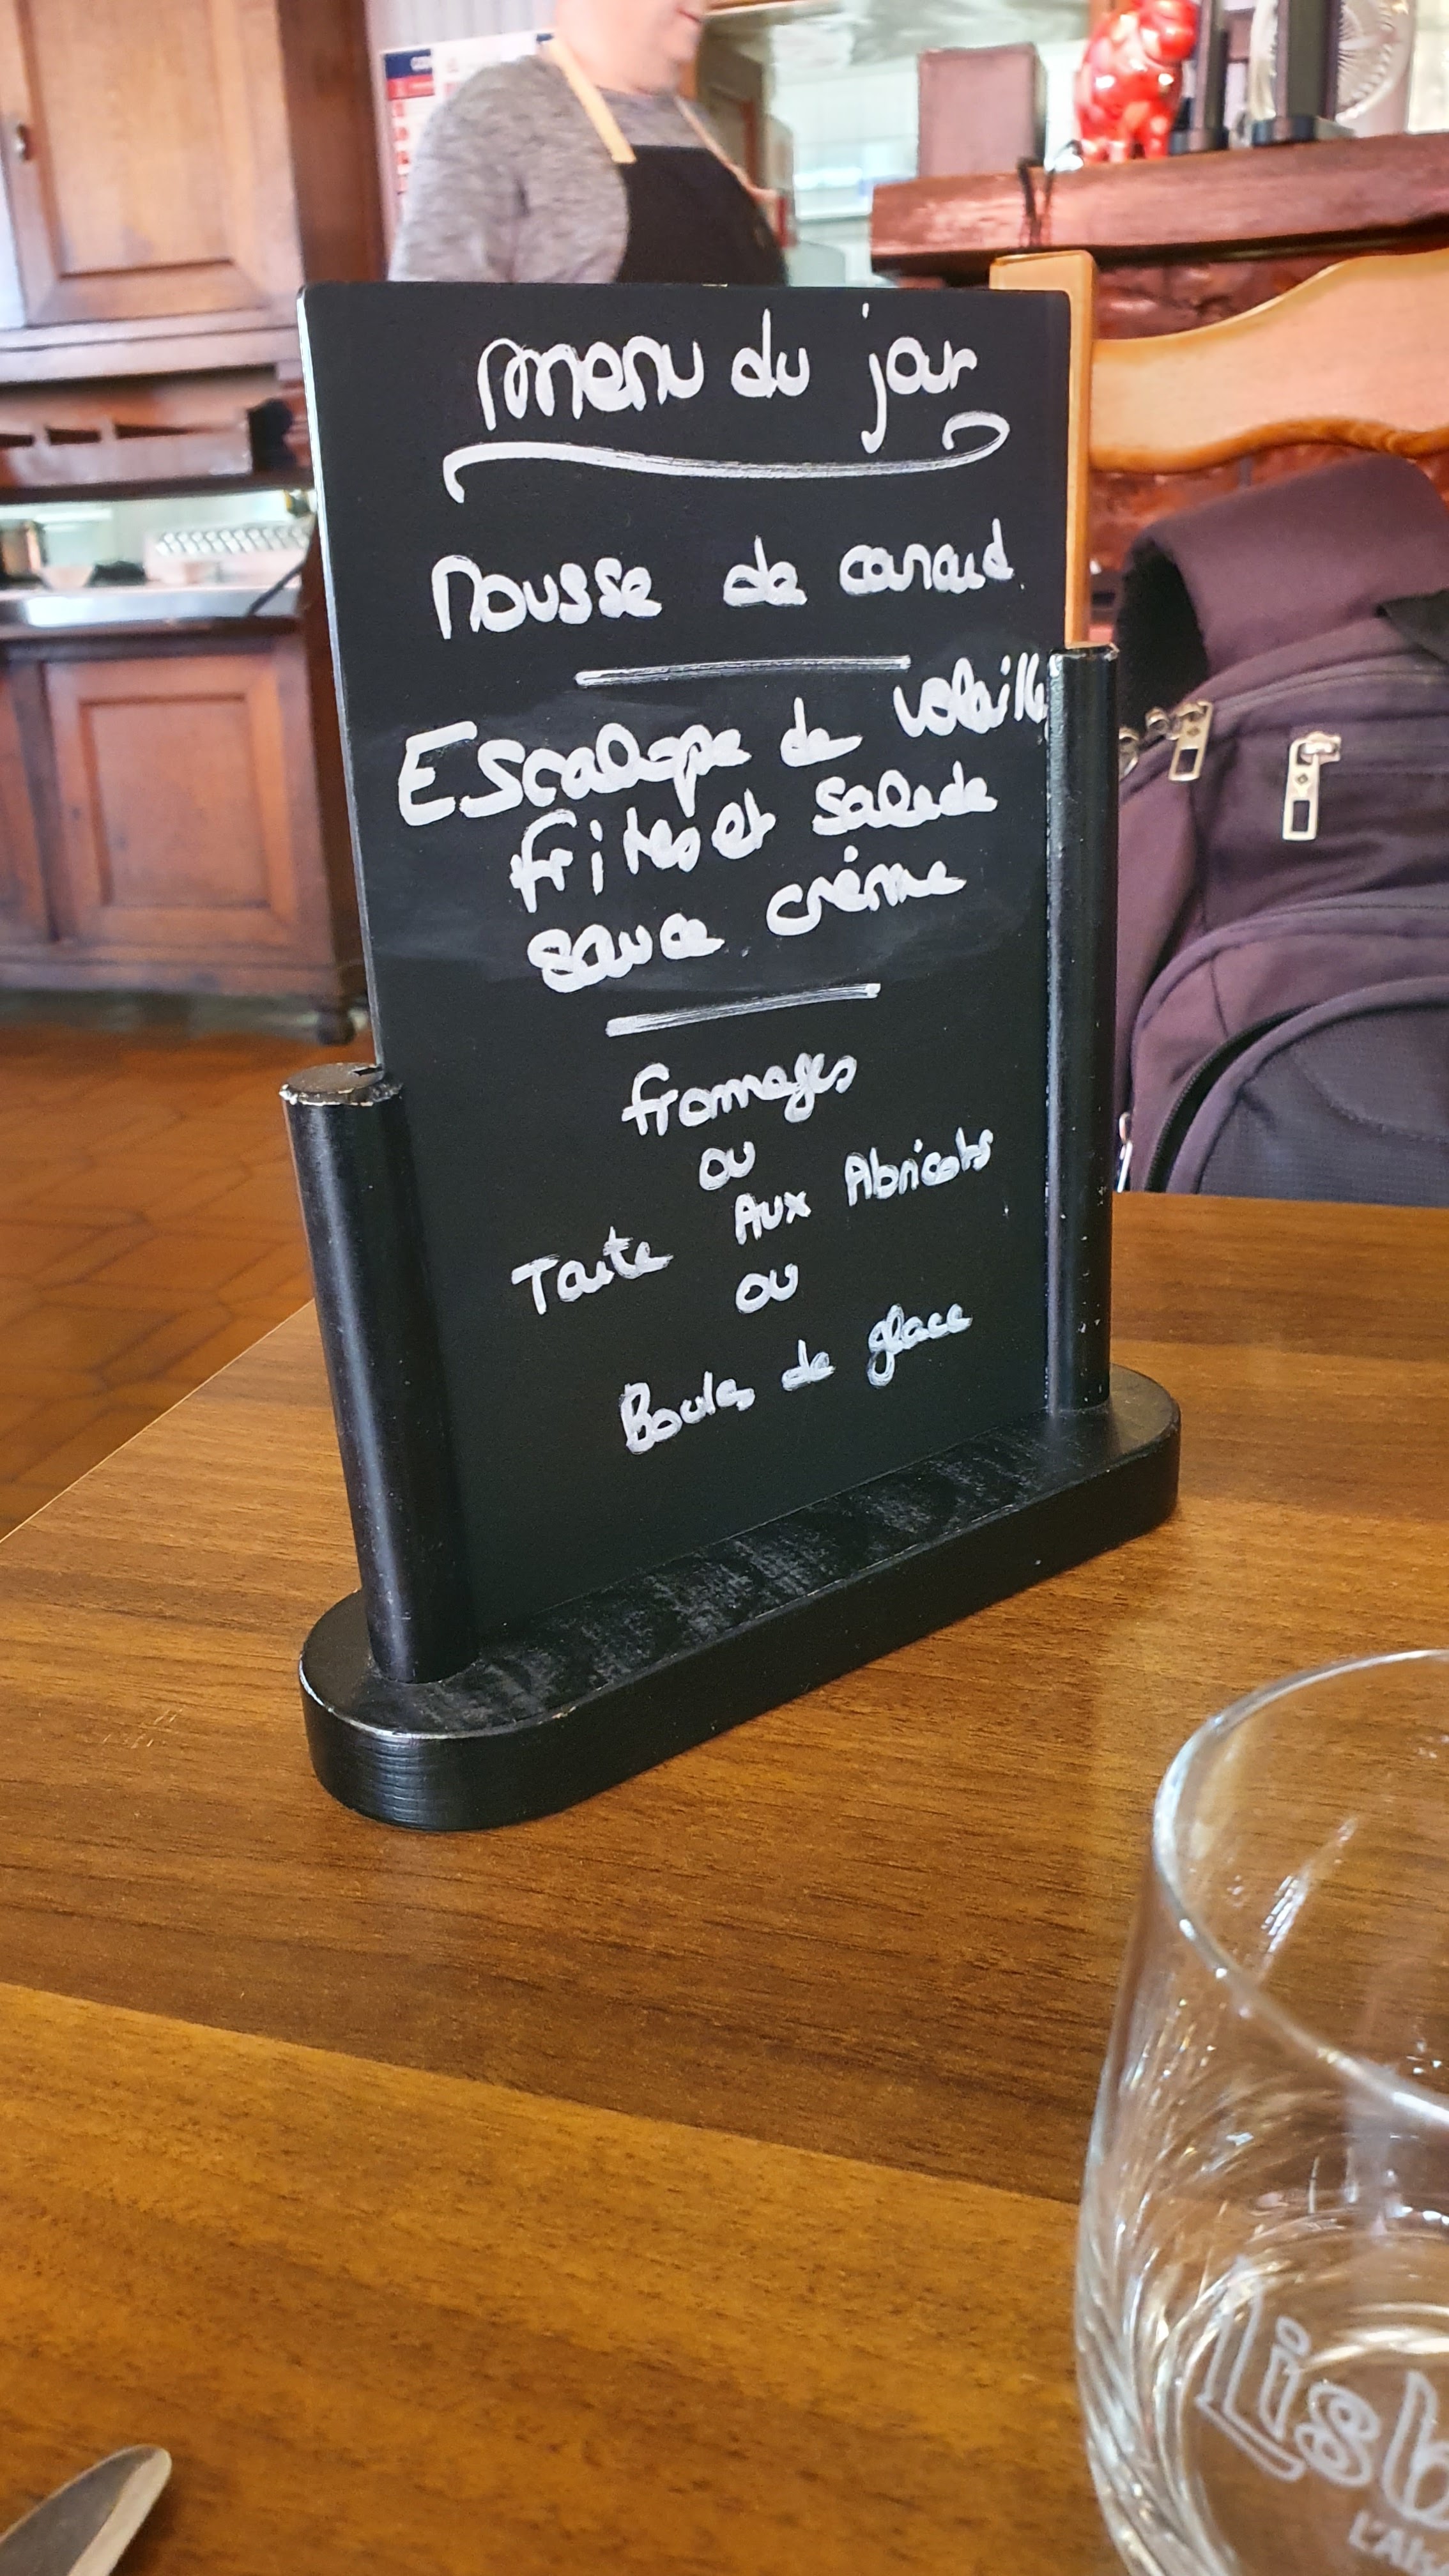 menu du jour
Mousse de canard
Escalope de volaille
frites et salade
sauce crème
fromages
ou
Tarte Aux Abricots
ou
Boules de glace
Lisb
L'A